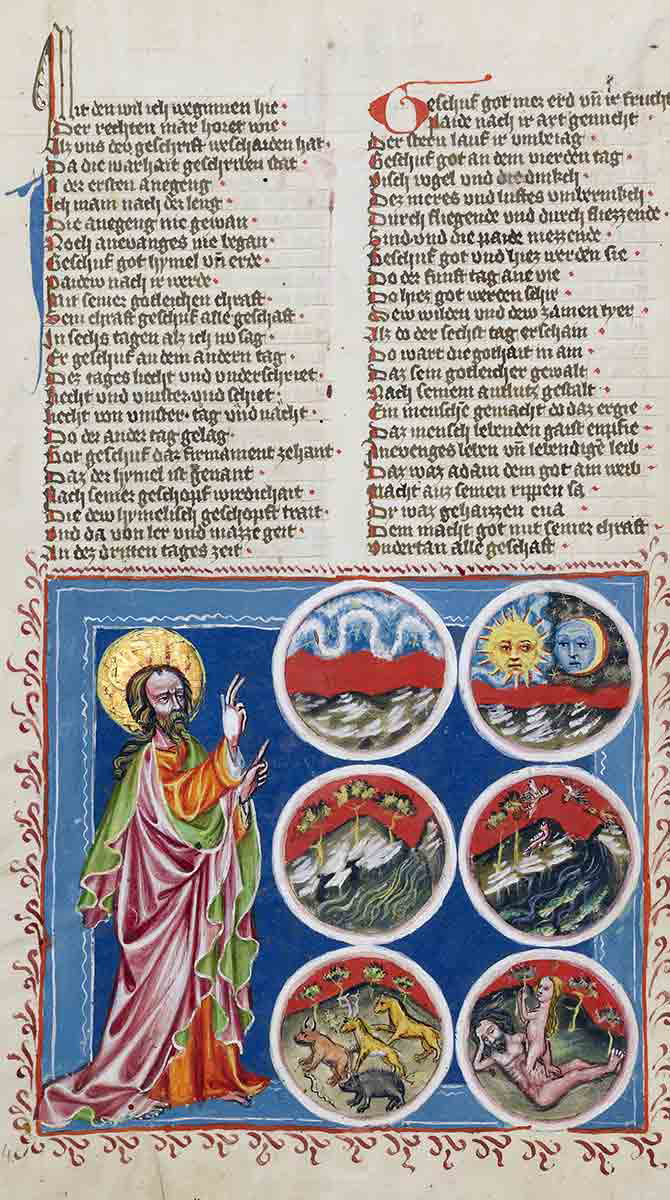 Mit den wil ich weginnen hie·
Der rechten mär horet wie·
Als vns dew geschrift weschaiden hat·
Da die warhait geschriben stat·
In der ersten anegeng·
Ich main nach der leng·
Die anegeng nie gewan·
Noch anevanges nie began·
Geschuf got hymel vn̄ erde·
Paidew nach ir werde·
Mit seiner gotleichen chraft·
Sein chraft geschuf alle geschaft·
In sechs tagen als ich nv sag·
Er geschuf an dem andern tag·
Dez tages liecht vnd vnderschriet·
liecht vnd vinster vnd schiet·
liecht von vinster· tag vnd nacht·
Do der ander tag gelag·
Got geschuf daz firmament zehant·
Daz der hymel ist genant·
Nach seiner geschopf wirdichait·
Die dew hymelisch geschopft trait·
vnd da von ler vnd mazze geit·
In dez dritten tages zeit·
Geschuf got mer erd vn̄ ir frucht
Paide nach ir art genucht·
Der stern lauf ir vmbeiag·
Geschuf got an dem vierden tag·
Visch vogel vnd die
Dez meres vnd luftes
Durch fliegende vnd durch fliezzende·
Sind vnd die paide niezzende·
Geschuf got vnd hiez werden sie·
Do der funft tag ane vie·
Do hiez got werden schir·
Dew wilden vnd dew zamen tyer·
Alz do der sechst tag erschain·
Do wart die gothait in ain·
Daz sein gotleicher gewalt·
Nach seinem antlutz gestalt·
Ein mensche gemacht do daz ergie·
Daz mensch lebenden gaist enpfie·
leben vn̄ lebendigē leib·
Daz waz adam dem got ain weib·
Macht auz seinen rippen sa·
Dv waz gehaizzen eua·
Dem macht got mit seiner chraft·
vndertan alle geschaft·